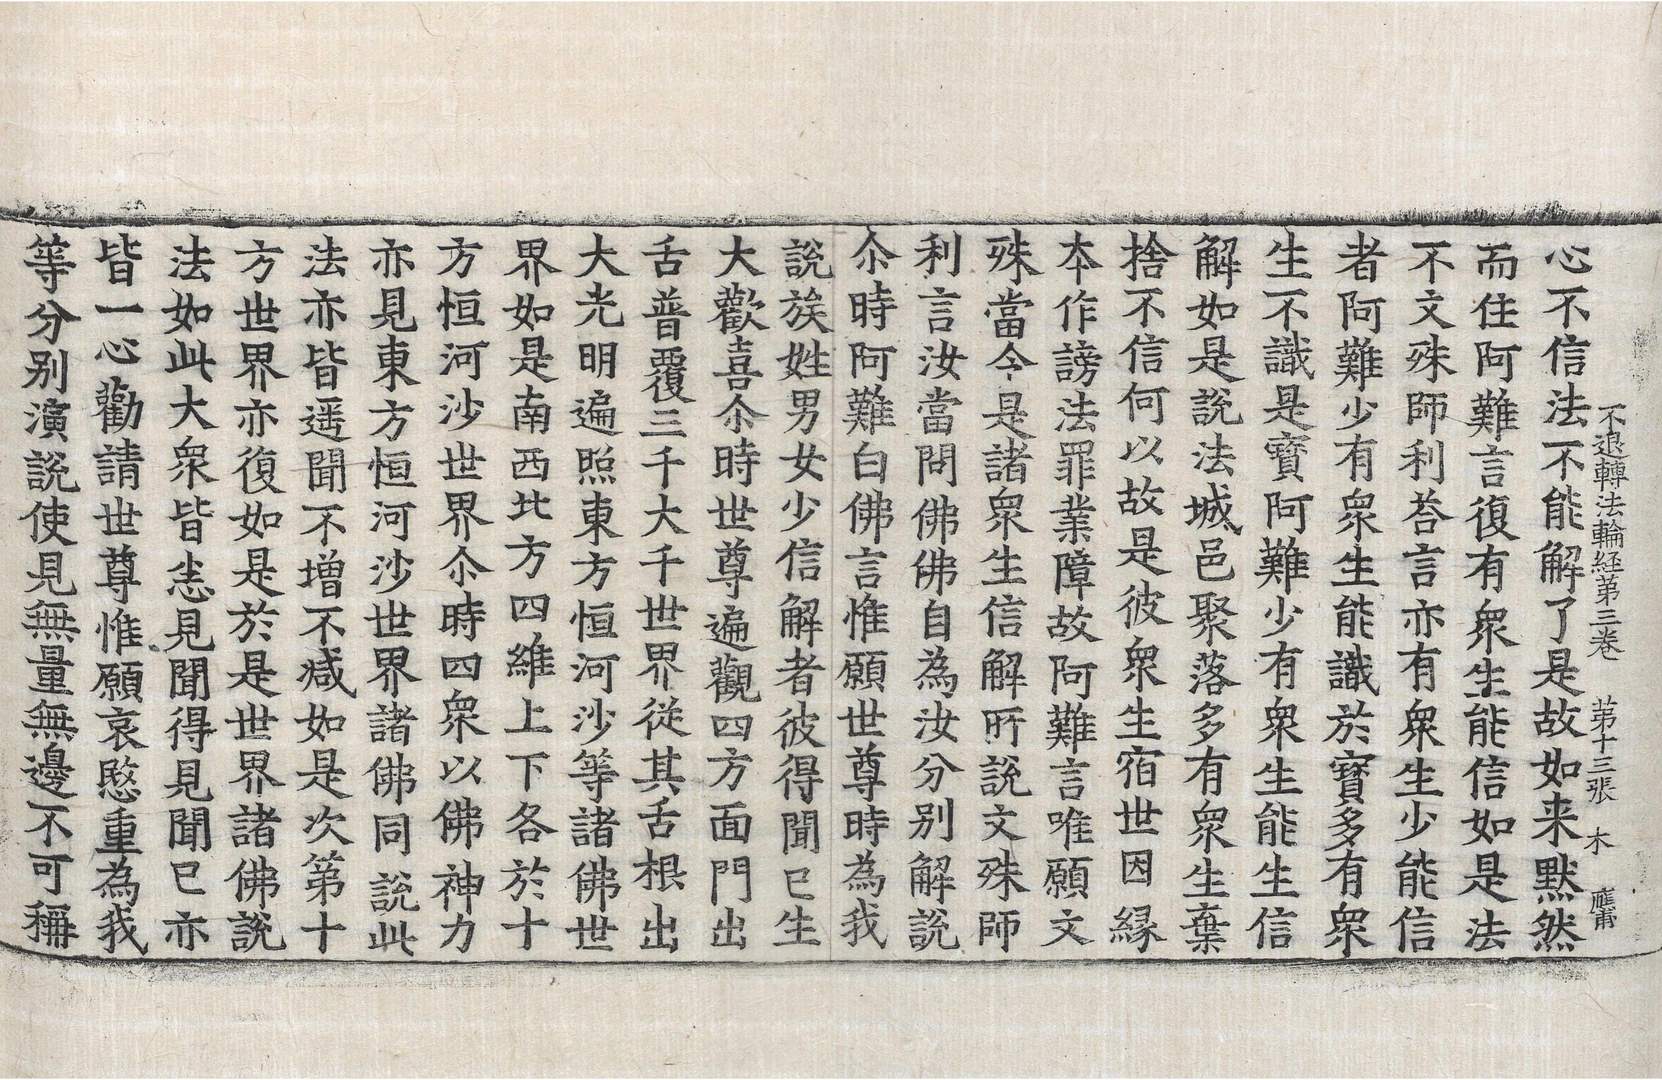 不退轉法輪経第三卷 第十三張 木 應甫
心不信法不能解了是故如来默然
而住阿難言復有衆生能信如是法
不文殊師利荅言亦有衆生少能信
者阿難少有衆生能識於寶多有衆
生不識是寶阿難少有衆生能生信
解如是說法城邑聚落多有衆生棄
捨不信何以故是彼衆生宿世因緣
本作謗法罪業障故阿難言唯願文
殊當今是諸衆生信解所說文殊師
利言汝當問佛佛自為汝分别解說
尒時阿難白佛言惟願世尊時為我
說族姓男女少信解者彼得聞已生
大歡喜尒時世尊遍觀四方面門出
舌普覆三千大千世界從其舌根出
大光明遍照東方恒河沙等諸佛世
界如是南西北方四維上下各於十
方恒河沙世界尒時四衆以佛神力
亦見東方恒河沙世界諸佛同說此
法亦皆遥聞不增不减如是次第十
方世界亦復如是於是世界諸佛說
法如此大衆皆悉見聞得見聞已亦
皆一心勸請世尊惟願哀愍重為我
等分别演說使見無量無邊不可稱